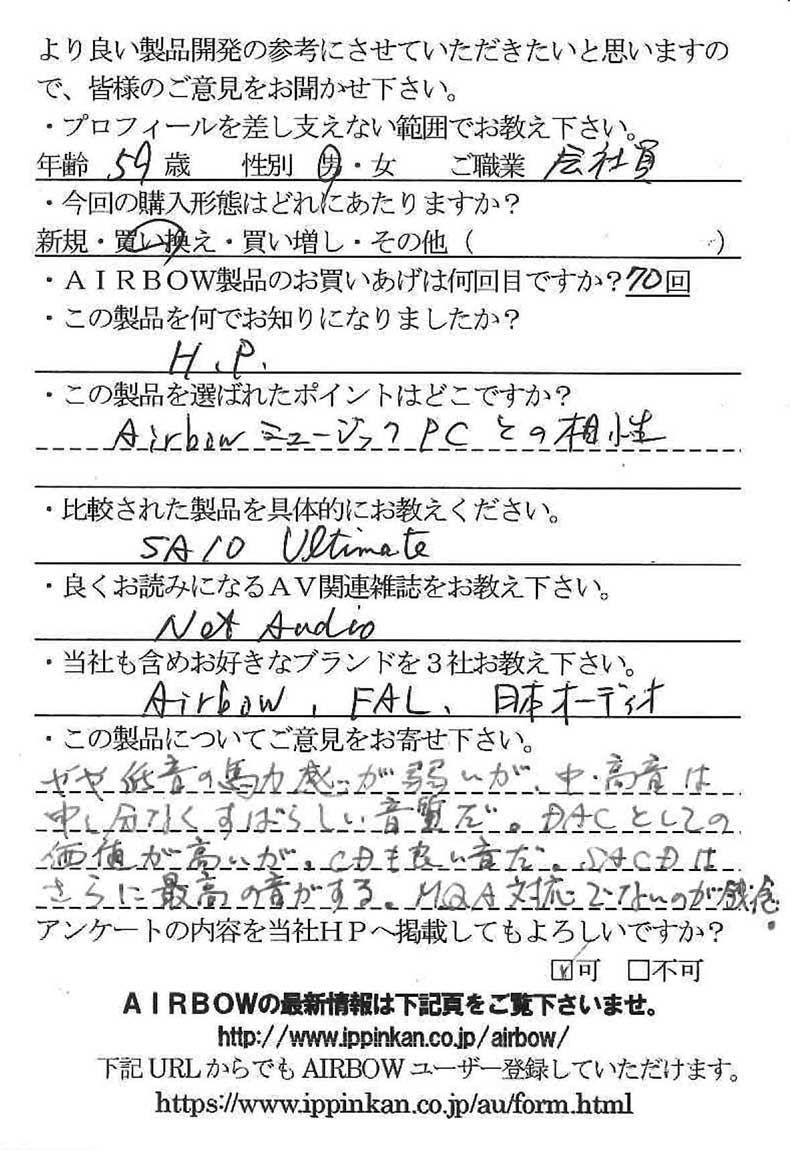 より良い製品開発の参考にさせていただきたいと思いますの
で、皆様のご意見をお聞かせ下さい。
・プロフィールを差し支えない範囲でお教え下さい。
年齢 59 歳 性別 男・女 ご職業 会社員
・今回の購入形態はどれにあたりますか？
新規・買い換え・買い増し・その他（ ）
・ＡＩＲＢＯＷ製品のお買いあげは何回目ですか？70回
・この製品を何でお知りになりましたか？
H.P.
・この製品を選ばれたポイントはどこですか？
Airbow ミュージックPCとの相性
・比較された製品を具体的にお教えください。
SA10 Ultimate
・良くお読みになるＡＶ関連雑誌をお教え下さい。
Net Audio
・当社も含めお好きなブランドを３社お教え下さい。
Airbow、FAL、日本オーディオ
・この製品についてご意見をお寄せ下さい。
やや低音の馬力感が弱いが、中・高音は
申し分なくすばらしい音質だ。DACとしての
価値が高いが。CDも良い音だ。SACDは
さらに最高の音がする。MQA対応でないのが残念。
アンケートの内容を当社ＨＰへ掲載してもよろしいですか？
☑可 □不可
ＡＩＲＢＯＷの最新情報は下記頁をご覧下さいませ。
http://www.ippinkan.co.jp/airbow/
下記 URL からでも AIRBOW ユーザー登録していただけます。
https://www.ippinkan.co.jp/au/form.html